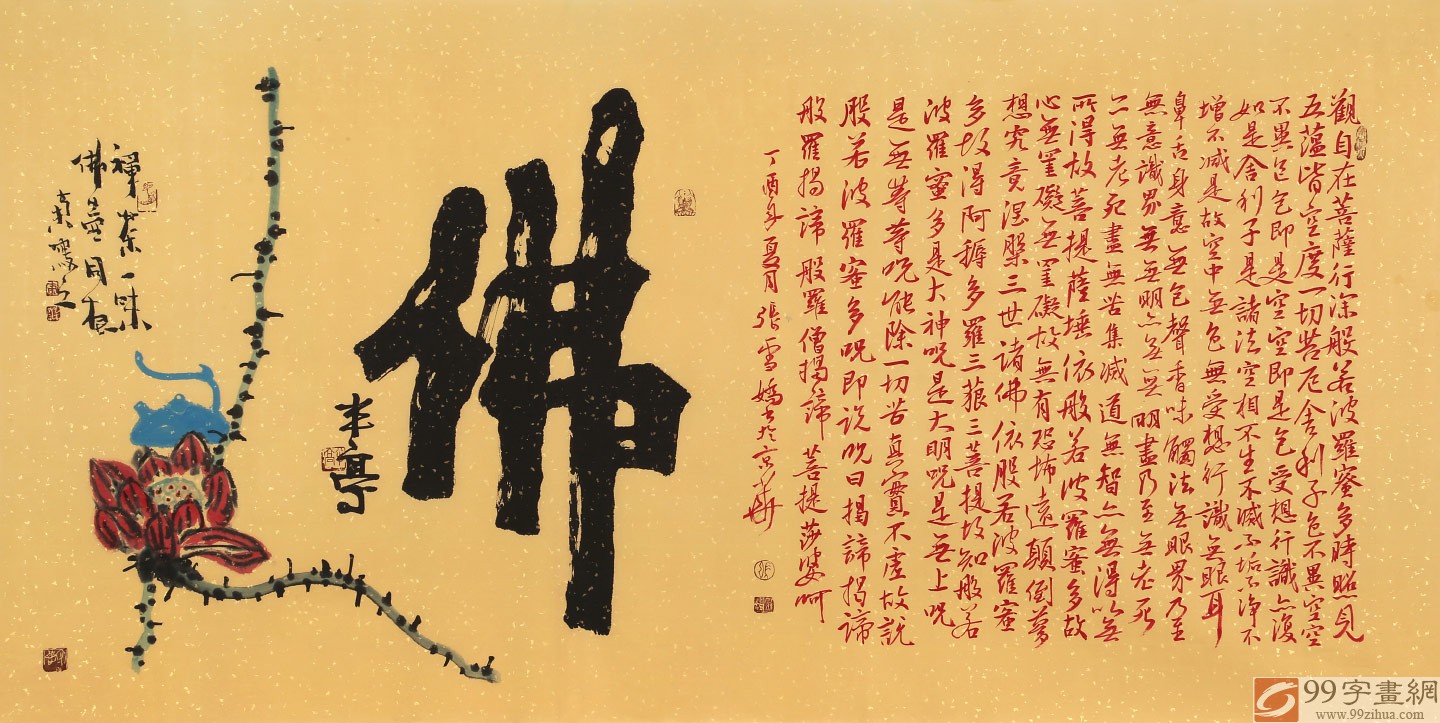 觀自在菩薩行深般若波羅蜜多時照見
五蕴皆空度一切苦厄舍利子色不異空空
不異色色即是空空即是色受想行識亦復
如是舍利子是諸法空相不生不滅不垢不淨不
增不减是故空中無色無受想行識無眼耳
鼻舌身意無色聲香味觸法無眼界乃至
無意識界無無明亦無無明盡乃至無老死
亦無老死盡無苦集滅道無智亦無得以無
所得故菩提薩埵依般若波羅蜜多故
心無罣礙無罣礙故無有恐怖遠顛倒夢
想究竟涅槃三世諸佛依般若波羅蜜
多故得阿耨多羅三藐三菩提故知般若
波羅蜜多是大神咒是大明咒是無上咒
是無等等咒能除一切苦真實不虛故說
般若波羅蜜多咒即說咒曰揭諦揭諦
般羅揭諦般羅僧揭諦菩提莎婆呵
丁酉年夏月張雪嬌書於京華
佛
半亭
禪茶一味
佛壺同根
99字畫網
www.99zihua.com